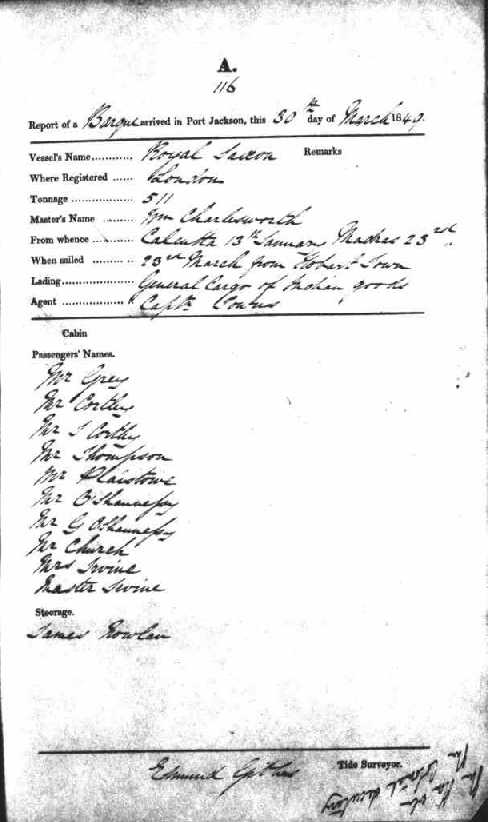 A.
116
Report of a Barque arrived in Port Jackson, this 30th day of March 1840.
Vessel's Name............ Royal Saxon Remarks
Where Registered ...... London
Tonnage .................. 511
Master's Name ......... Wm Charlesworth
From whence ............ Calcutta 13th January Madras 23rd
When sailed ......... 23rd March from Hobart Town
Lading..................... General Cargo of Indian goods
Agent .................. Captn
Cabin
Passengers' Names.
Mr Grey
Mr
Mr J
Mr Thompson
Mr Plaistowe
Mr O'Shannessy
Mr G O'Shannessy
Mr Church
Mrs Irvine
Master Irvine
Steerage.
James Nowlan
Edmund Tide Surveyor.